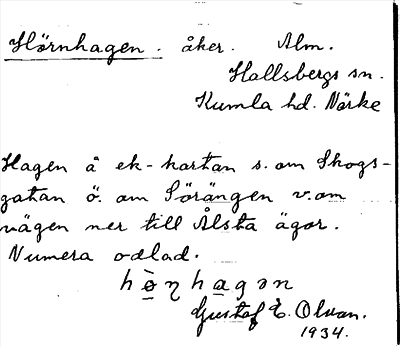 Hörnhagen. åker. Alm.
Hallsbergs sn.
Kumla hd. Närke
Hagen å ek-kartan s. om Skogs-
gatan ö. om Sörängen v. om
vägen ner till Ålsta ägor.
Numera odlad.
Gustaf E. Olsson.
1934.